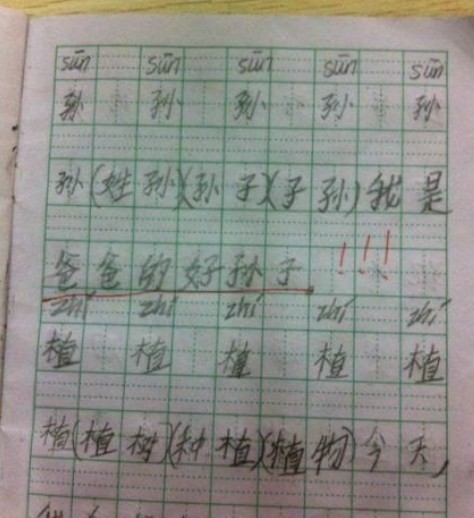 sūn sūn sūn sūn sūn
孙 孙 孙 孙 孙
孙(姓孙)(孙子)(子孙)我是
爸爸的好孙子!!!
zhí zhí zhí zhí zhí
植 植 植 植 植
植(植树)(种植)(植物)今天,